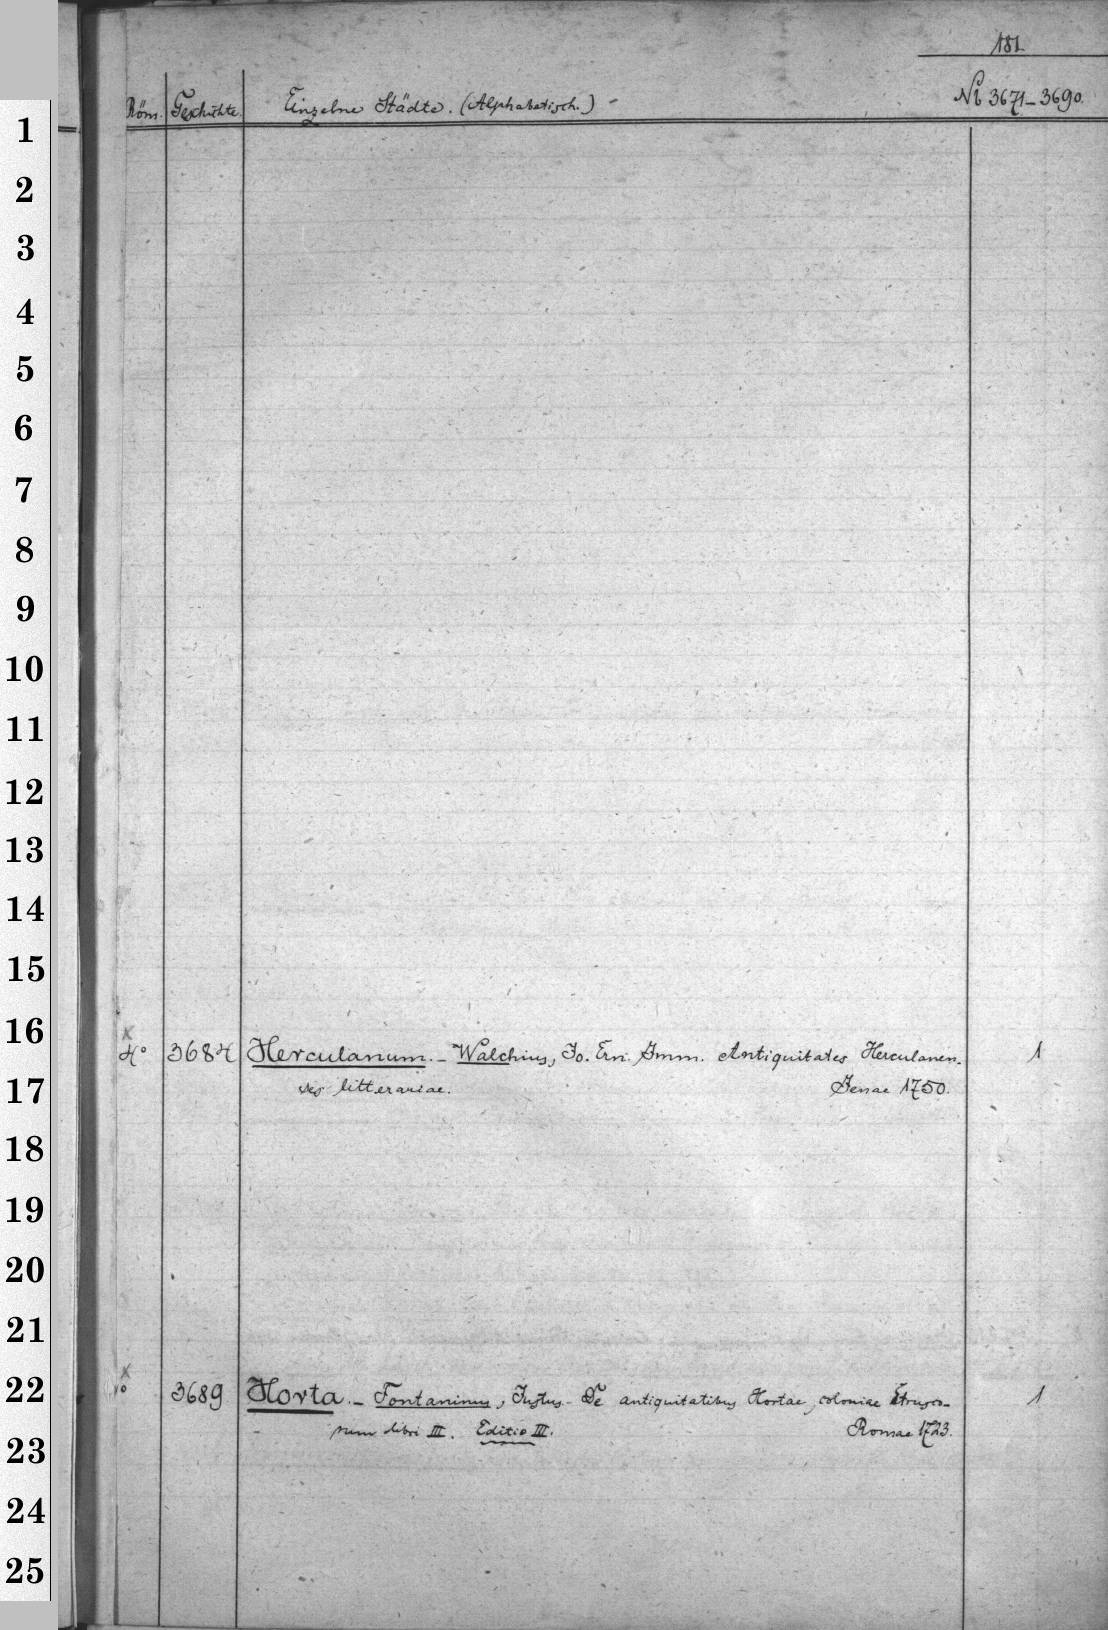 181
Röm. Geschichte. Einzelne Städte. (Alphabetisch.) - № 3671-3690.
1
2
3
4
5
6
7
8
9
10
11
12
13
14
15
16
x
4° 3684 Herculanum. - Walchius, Jo. Ern. Imm. Antiquitates Herculanen- 1
17 ses litterariae. Jenae 1750.
18
19
20
21
x
22 3689 Horta. - Fontaninus, Justus. De antiquitatibus Hortae, coloniae Etrusco- 1
rum libri III. Editio III. Romae 1723.
23
24
25